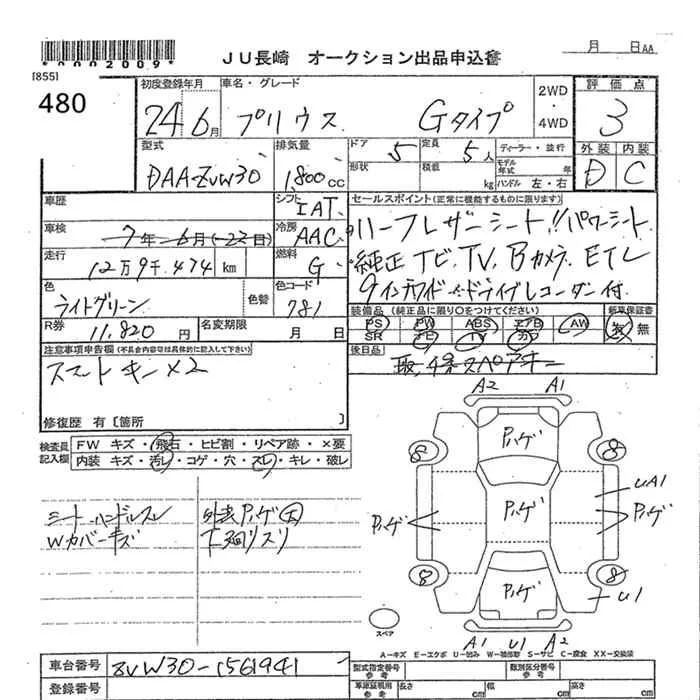 *0002009*
JU長崎 オークション出品申込書
月 日AA
[855]
480
初度登録年月 車名・グレード 2WD・4WD 評価点
24年6月 プリウス Gタイプ 3
型式 排気量 ドア 5 定員 5人 ディーラー・並行 外装 内装
DAA-ZVW30 1,800cc 形状 積載 kg モデル年式 年 ハンドル 左・右 D C
車歴 シフト IAT
セールスポイント(正常に機能するものに限ります)
車検 7年 6月(-22日) 冷房 AAC
ハーフレザーシート!! パワーシート
走行 12万9千474km 燃料 G
純正ナビ、TV、Bカメラ、ETC
色 ライトグリーン 色替 色コード 781
9インチワイド ドライブレコーダー付
R券 11,820円 名変期限 月 日
装備品(純正品に限り○をつけてください) 新車保証書
PS PW ABS エアB AW 有 無
SR ナビ TV カワ
注意事項申告欄(不具合内容等は具体的に記入して下さい)
スマートキー×2
後日品 取、保、スペアキー
修復歴 有〔箇所 〕
検査員記入欄 FW キズ・飛石・ヒビ割・リペア跡・×要
内装 キズ・汚レ・コゲ・穴・スレ・キレ・破レ
シート・ハンドルスレ
Wカバーキズ
外装Pハゲ大
下廻リスリ
A2 A1
Pハゲ
8 8
UA1
Pハゲ Pハゲ Pハゲ
8 8
Pハゲ
U1
スペア
A1 U1 A2
A-キズ E-エクボ U-凹み W-補修跡 S-サビ C-腐食 XX-交換済
車台番号 ZVW30-1561941
登録番号
型式指定番号 類別区分番号
車庫証明用参考 長さ cm 幅 cm 高さ cm